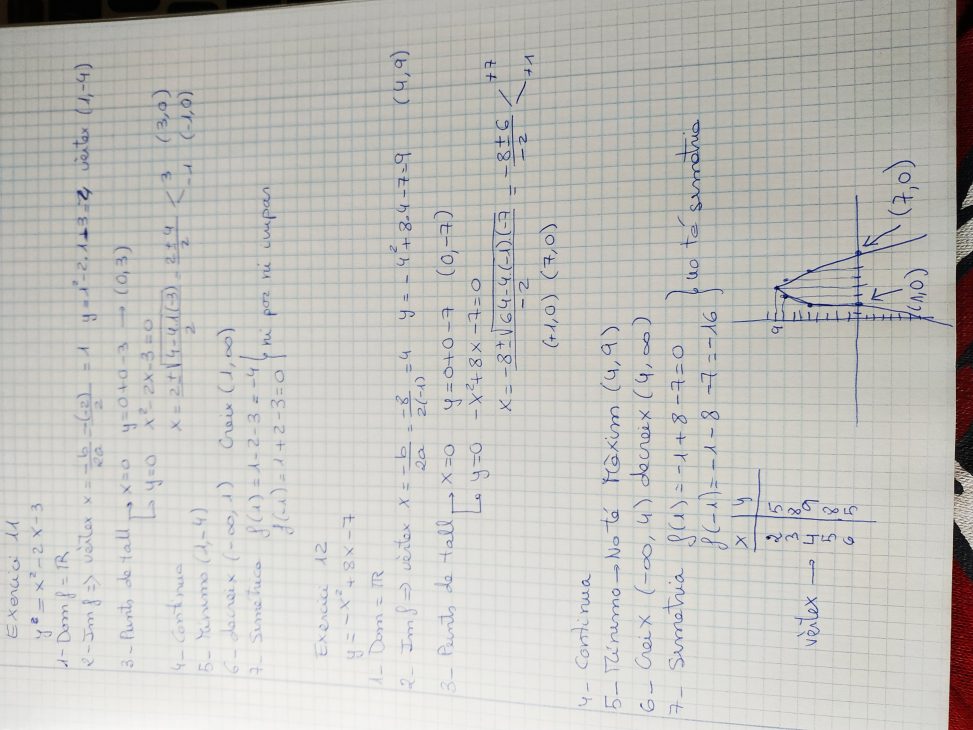 Exercici 11
y = x² - 2x - 3
1- Dom f = ℝ
2- Im f => vèrtex x = -b/2a = -(-2)/2 = 1 y = 1² - 2·1 - 3 = -4 vèrtex (1,-4)
3- Punts de tall → x=0 y=0+0-3 → (0,3)
↳ y=0 x² - 2x - 3 = 0
x = 2±√4-4·1(-3)/2 = 2±4/2 < 3 (3,0)
-1 (-1,0)
4- Continua
5- Mínimo (1,-4)
6- decreix (-∞,1) Creix (1,∞)
7- Simetrica f(1) = 1-2-3 = -4 } ni par ni impar
f(-1) = 1+2-3 = 0
Exercici 12
y = -x² + 8x - 7
1- Dom = ℝ
2- Im f => vèrtex x = -b/2a = -8/2(-1) = 4 y = -4² + 8·4 - 7 = 9 (4,9)
3- Punts de tall → x=0 y=0+0-7 (0,-7)
↳ y=0 -x²+8x-7=0
x = -8±√64-4·(-1)·(-7)/-2 = -8±6/-2 < +7
+1
(+1,0) (7,0)
4- Continua
5- Mínimo → No té Màxim (4,9)
6- Creix (-∞,4) decreix (4,∞)
7- Simetria f(1) = -1+8-7=0 } no té simetria
f(-1) = -1-8-7=-16
x y
2 5
3 8
vèrtex → 4 9
5 8
6 5
9
(1,0)
(7,0)